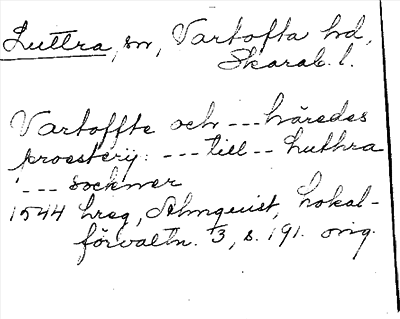 Luttra, sn, Vartofta hd,
Skarab. l.
Vartoffte och --- häredes
proesterij: --- till -- Luthra
--- sockner
1544 hreg, Almquist, Lokal-
förvaltn. 3, s. 191. orig.